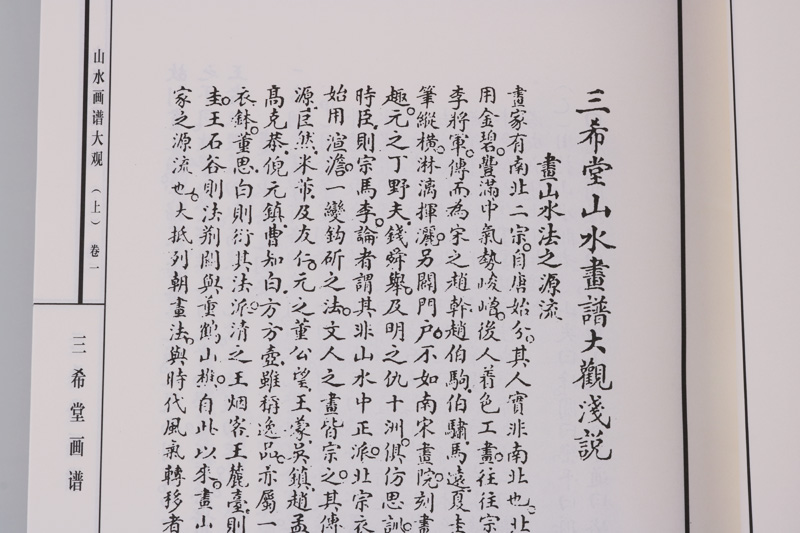 三希堂山水畫譜大觀淺説
畫山水法之源流
畫家有南北二宗。自唐始分。其人實非南北也。北
用金碧。豐滿中氣勢峻嶒。後人着色工畫。往往宗
李將軍。傳而為宋之趙幹。趙伯駒。伯驌。馬遠。夏圭
筆縱橫。淋漓揮灑。另闢門戶。不如南宋畫院。刻畫
趣。元之丁野夫。錢舜舉。及明之仇十洲。俱仿思訓。
時臣。則宗馬李。論者謂其非山水中正派。北宗衣
始用渲澹。一變鈎斫之法。文人之畫皆宗之。其傳
源。巨然。米芾。及友仁。元之董公望。王蒙。吳鎮。趙孟
高克恭。倪元鎮。曹知白。方方壺。雖稱逸品。亦屬一
衣鉢。董思白則衍其法派。清之王烟客。王麓臺。則
圭。王石谷則法荊關。與董鶴山樵。自此以來。畫山
家之源流也。大抵列朝畫法。與時代風氣轉移者
山水画谱大观（上）卷一
三希堂画谱